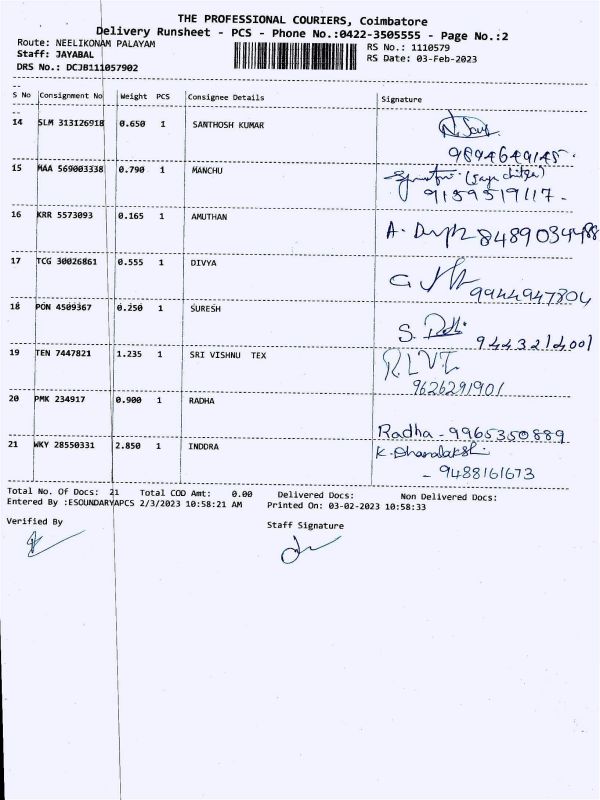 THE PROFESSIONAL COURIERS, Coimbatore
Delivery Runsheet - PCS - Phone No.:0422-3505555 - Page No.:2
Route: NEELIKONAM PALAYAM
Staff: JAYABAL
DRS No.: DCJB111057902
RS No.: 1110579
RS Date: 03-Feb-2023
S No Consignment No Weight PCS Consignee Details Signature
14 SLM 313126918 0.650 1 SANTHOSH KUMAR
9894649145.
15 MAA 569003338 0.790 1 MANCHU
9159519117-
16 KRR 5573093 0.165 1 AMUTHAN
A. 8489034488
17 TCG 30026861 0.555 1 DIVYA
9944947804
18 PON 4509367 0.250 1 SURESH
S. 9443214001
19 TEN 7447821 1.235 1 SRI VISHNU TEX
9626291901
20 PMK 234917 0.900 1 RADHA
Radha - 9965350889
21 WKY 28550331 2.850 1 INDDRA
K. Dhanalakshi
- 9488161673
Total No. Of Docs: 21 Total COD Amt: 0.00 Delivered Docs: Non Delivered Docs:
Entered By :ESOUNDARYAPCS 2/3/2023 10:58:21 AM Printed On: 03-02-2023 10:58:33
Verified By
Staff Signature